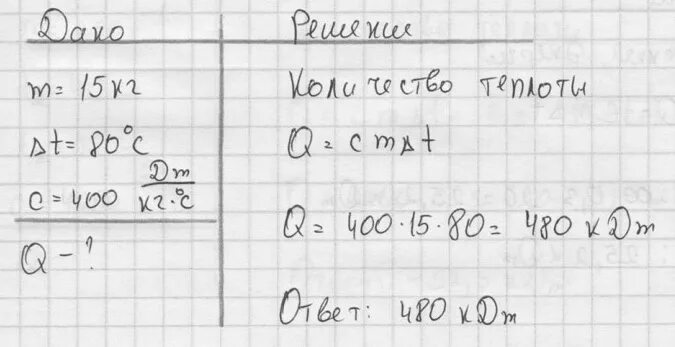 Дано
m = 15 кг
Δt = 80°C
c = 400 Дж/кг·°C
Q – ?
Решение
Количество теплоты
Q = c m Δt
Q = 400·15·80 = 480 кДж
Ответ: 480 кДж